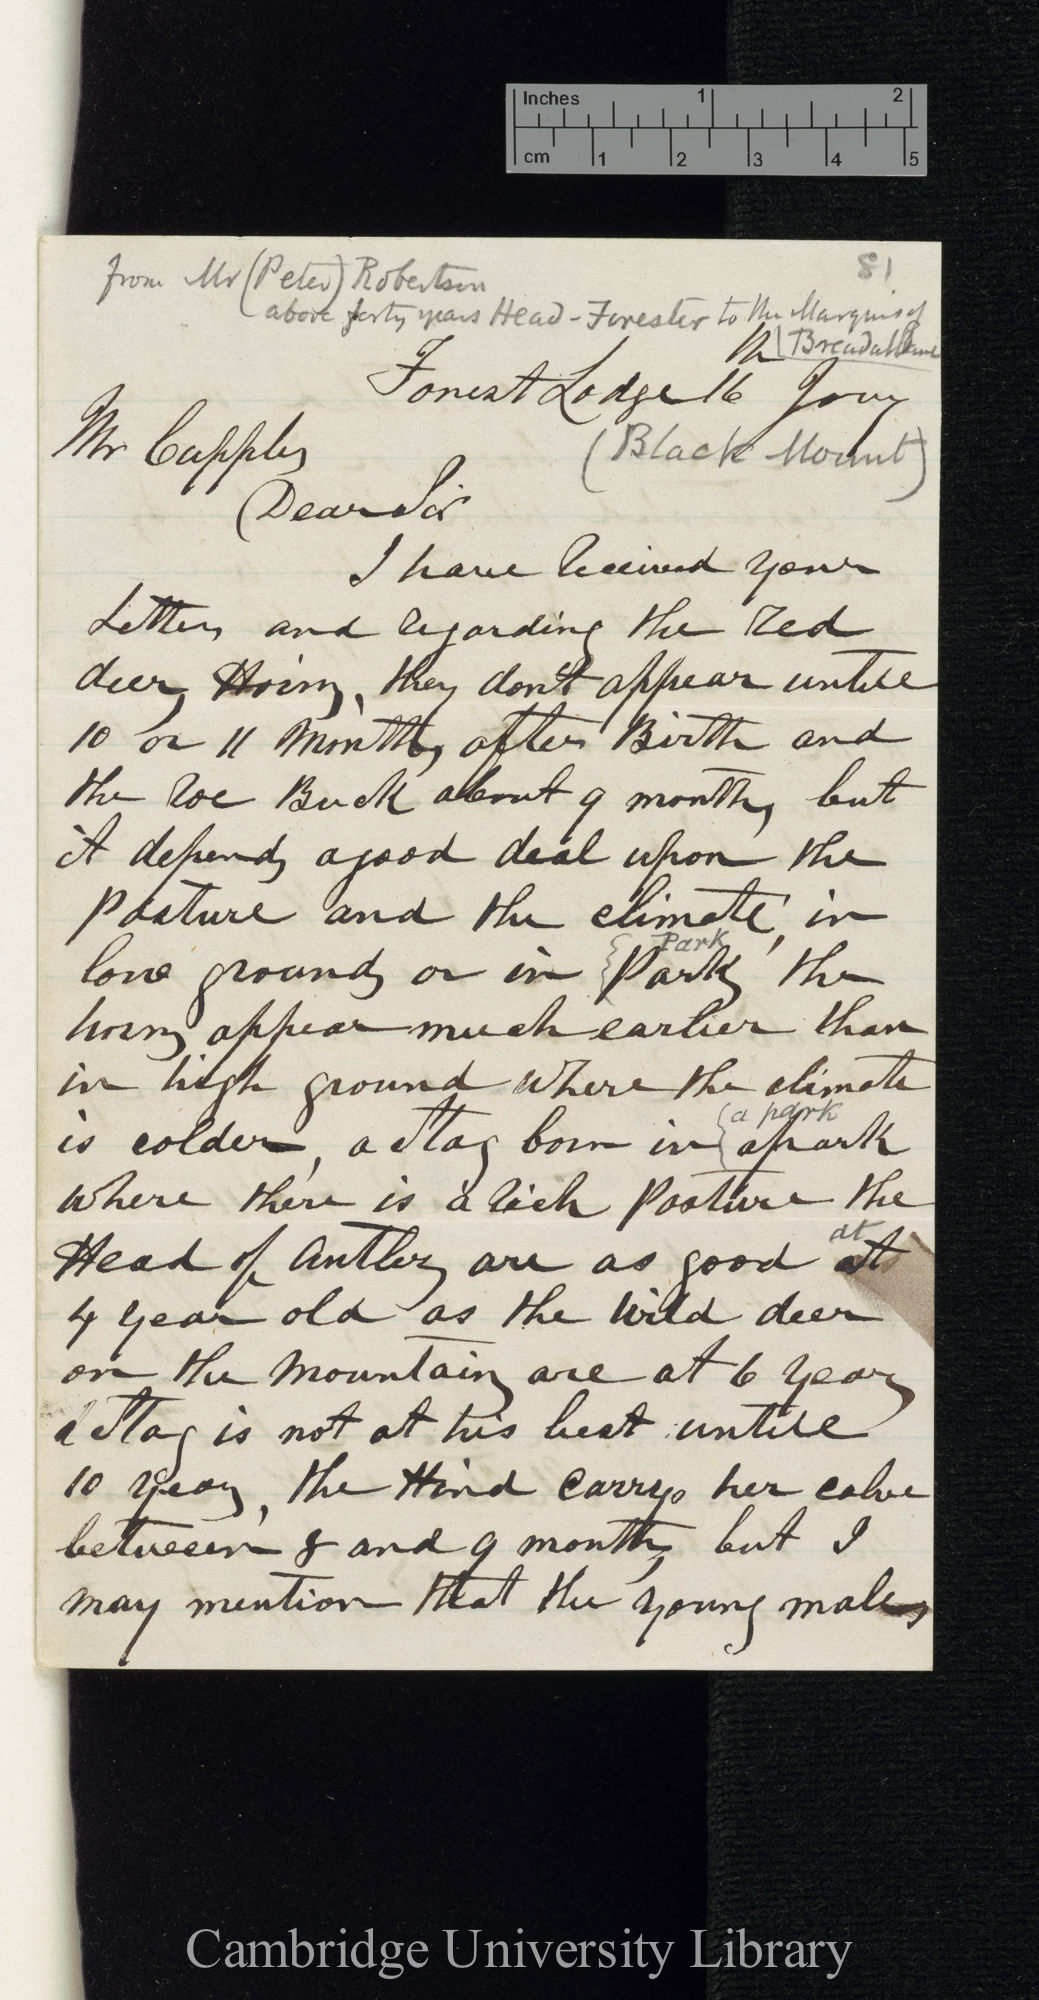 Inches 1 2
cm 1 2 3 4 5
81
from Mr (Peter) Robertson
(above forty years Head-Forester to the Marquis of
Breadalbane
Forest Lodge 16th Jany
(Black Mount)
Mr Cupples
Dear Sir
I have received your
Letters and regarding the red
deer, Horns, they don't appear untill
10 or 11 Months after Birth and
the roe Buck about 9 months, but
it depends a good deal upon the
Pasture and the climate, in
Park
low grounds or in Parks the
horns appear much earlier than
in high ground where the climate
a park
is colder, a Stag born in apark
where there is a rich Pasture the
at
Head of Antlers are as good at
4 year old as the wild deer
on the Mountains are at 6 years
a Stag is not at his best untill
10 years, the Hind carrys her calve
between 8 and 9 months, but I
may mention that the young males
Cambridge University Library